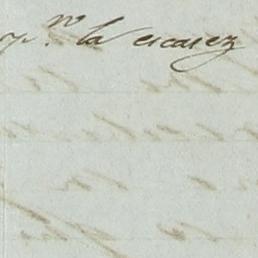 pʳ. la escasez